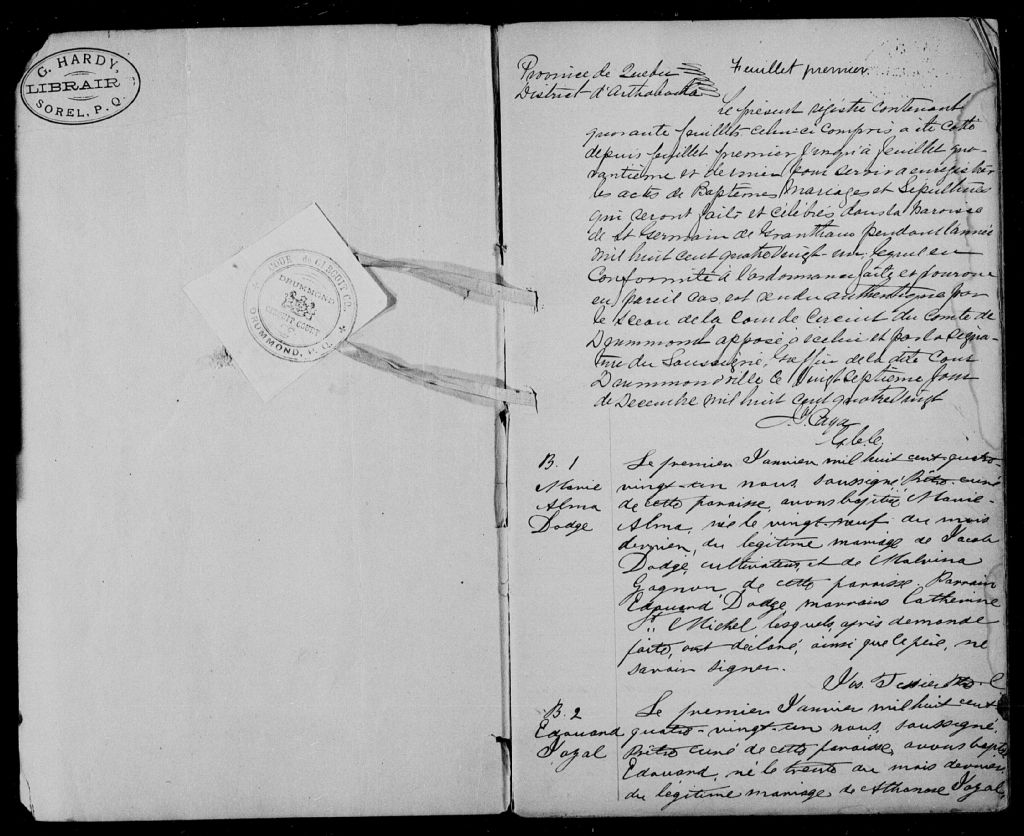 G. HARDY,
LIBRAIR
SOREL, P.Q.
COUR de CIRCUIT CO.
DRUMMOND
CIRCUIT COURT
DRUMMOND, P.Q.
Province de Quebec
District d'Arthabaska
Feuillet premier
Le présent régistre contenant
quarante feuillets celui-ci compris a été cotté
depuis feuillet premier jusqu'à feuillet qua-
rantième et dernier pour servir a enregistrer
les actes de Baptêmes Mariages et Sepultures
qui seront faits et célébrés dans la Paroisse
de St Germain de Grantham pendant l'année
mil huit cent quatre vingt-un, lequel en
Conformité à l'ordonnance faite et pourvue
en pareil cas est rendu authentique par
le sceau de la Cour de Circuit du Comté de
Drummond apposé a celui et par la signa-
ture du Soussigné, Greffier de la dite Cour
Drummondville ce Vingt Septième jour
de Decembre mil huit cent quatre vingt
B. 1
Marie
Alma
Dodge
Le premier Janvier mil huit cent quatre-
vingt-un nous soussigné Prêtre curé
de cette paroisse, avons baptisé Marie-
Alma, née le vingt-neuf du mois
dernier, du légitime mariage de Jacob
Dodge, cultivateur, et de Malvina
Gagnon de cette paroisse. Parrain
Edouard Dodge, marraine Catherine
St. Michel lesquels, après demande
faite, ont déclaré, ainsi que le père, ne
savoir signer.
Jos. Tessier Ptre. C
B. 2
Edouard
Joyal
Le premier Janvier mil huit cent
quatre-vingt-un nous, soussigné,
Prêtre curé de cette paroisse, avons baptisé
Edouard, né le trente du mois dernier
du légitime mariage de Athanase Joyal,